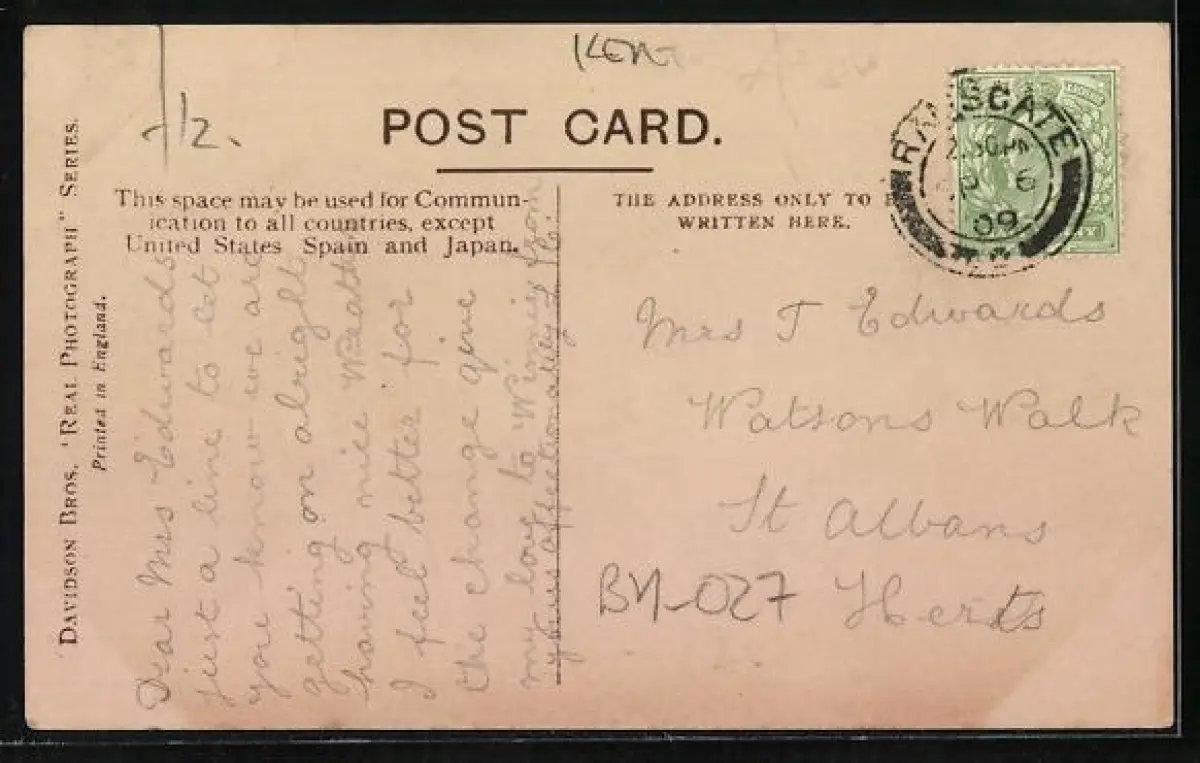 Kent
-/2.
POST CARD.
This space may be used for Commun-
ication to all countries, except
United States, Spain and Japan.
THE ADDRESS ONLY TO
WRITTEN HERE.
RAMSGATE
2.30 PM
6
09
DAVIDSON BROS. "REAL PHOTOGRAPH" SERIES.
Printed in England.
Dear Mrs Edwards
just a line to let
you know we are
getting on alright
having nice weath
I feel better for
the change give
my love to Winnie from
yours affectionately
Mrs T Edwards
Watsons Walk
St Albans
Herts
BY-027